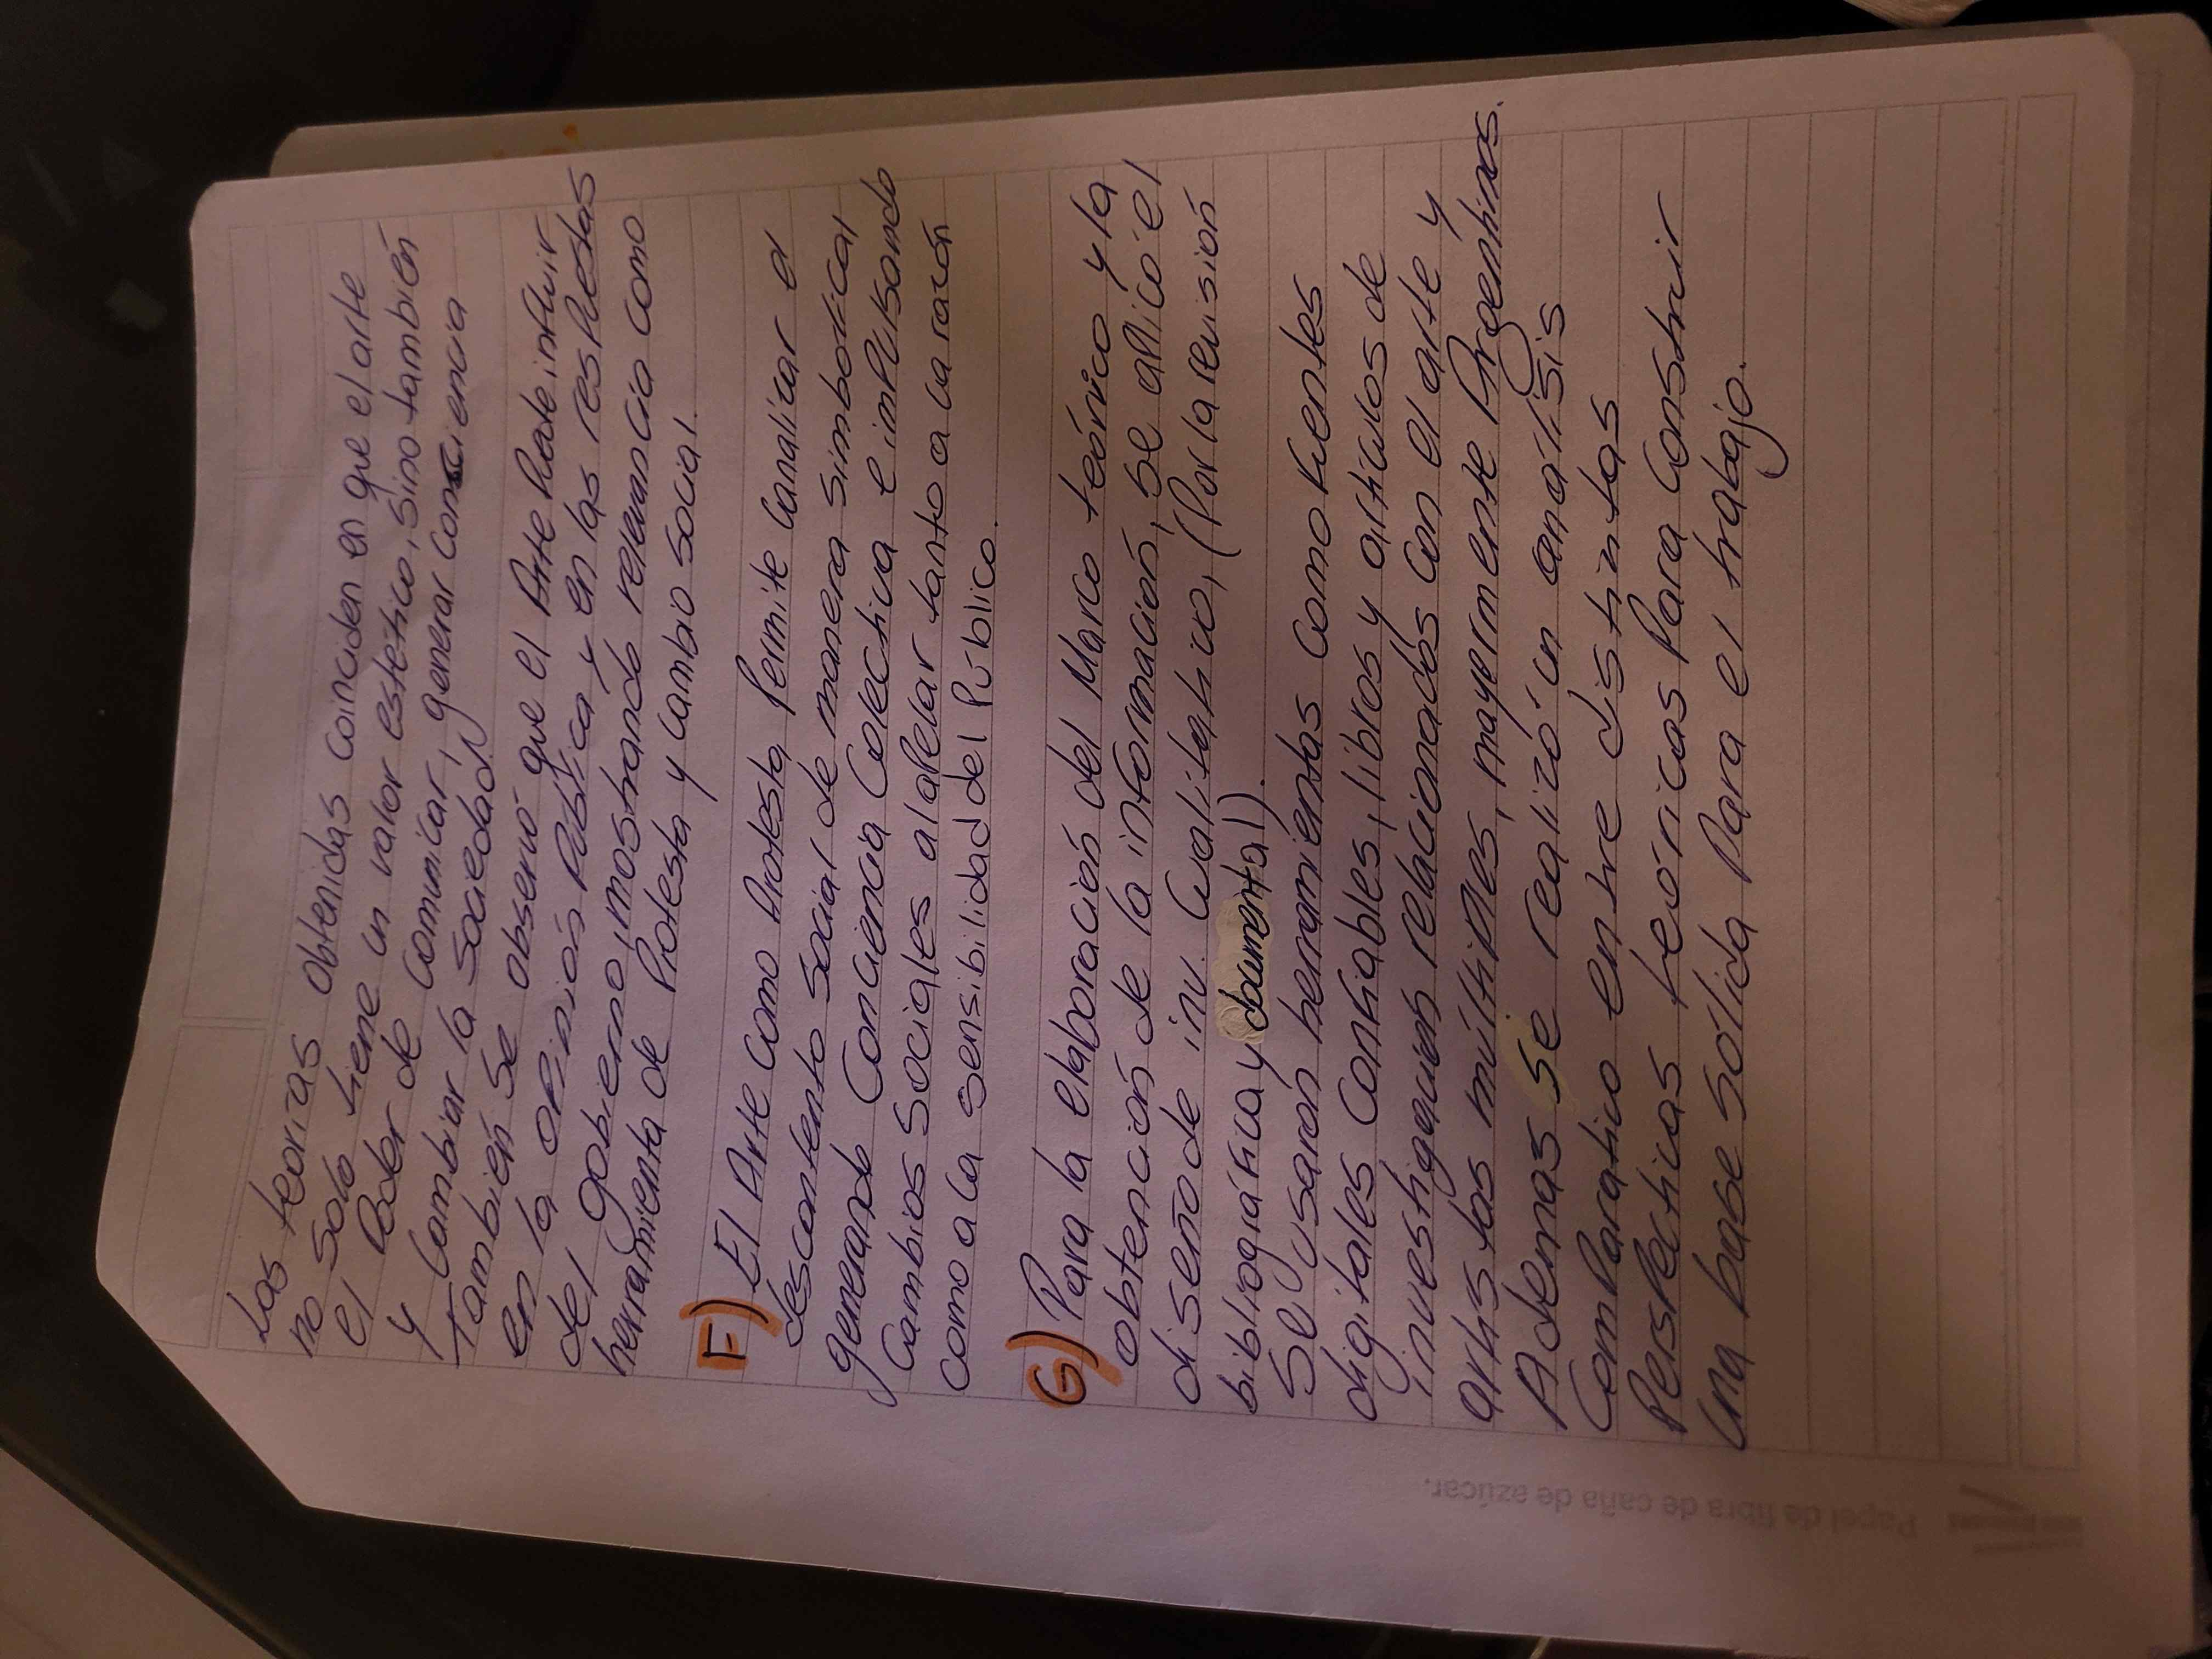 Las teorias obtenidas coinciden en que el arte
no solo tiene un valor estético, sino también
el Poder de comunicar, generar consciencia
y Cambiar la sociedad.
También se observó que el Arte Puede influir
en la opinión Pública y en las respuestas
del gobierno, mostrando relevancia como
herramienta de Protesta y cambio social.
F) El Arte como Protesta Permite canalizar el
descontento social de manera simbolica,
generando Conciencia Colectiva e impulsando
Cambios sociales al apelar tanto a la razón
como a la sensibilidad del Público.
G) Para la elaboración del Marco teórico y la
obtención de la información, se aplicó el
diseño de inv. Cualitativo, (Por la revisión
bibliográfica y documental).
Se usaron herramientas como fuentes
digitales confiables, libros y articulos de
investigación relacionados con el arte y
artistas múltiples, mayermente Argentinos.
Ademas se realizó un analisis
Comparativo entre distintas
Perspectivas teóricas Para Construir
una base solida Para el trabajo.
Papel de fibra de caña de azúcar.